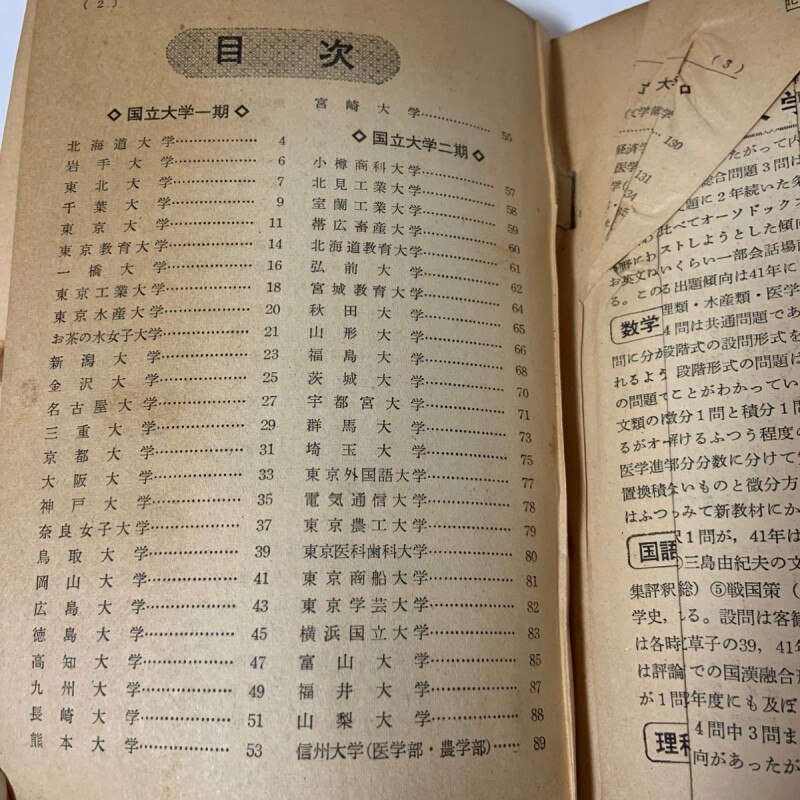 (2)
目次
◇国立大学一期◇
北海道大学 4
岩手大学 6
東北大学 7
千葉大学 9
東京大学 11
東京教育大学 14
一橋大学 16
東京工業大学 18
東京水産大学 20
お茶の水女子大学 21
新潟大学 23
金沢大学 25
名古屋大学 27
三重大学 29
京都大学 31
大阪大学 33
神戸大学 35
奈良女子大学 37
鳥取大学 39
岡山大学 41
広島大学 43
徳島大学 45
高知大学 47
九州大学 49
長崎大学 51
熊本大学 53
宮崎大学 55
◇国立大学二期◇
小樽商科大学 57
北見工業大学 58
室蘭工業大学 59
帯広畜産大学 60
北海道教育大学 61
弘前大学 62
宮城教育大学 64
秋田大学 65
山形大学 66
福島大学 68
茨城大学 70
宇都宮大学 71
群馬大学 73
埼玉大学 75
東京外国語大学 77
電気通信大学 78
東京農工大学 79
東京医科歯科大学 80
東京商船大学 81
東京学芸大学 82
横浜国立大学 83
富山大学 85
福井大学 87
山梨大学 88
信州大学(医学部・農学部) 89
(3)
130
131
134
たがって内
総合問題3問は
題に2年続いた条
比べてオーソドックス
ストしようとした傾向
いくらい一部会話場面
る。この出題傾向は41年に
理類・水産類・医学
数学
4問は共通問題であ
問に分か段階式の設問形式を
れるよう 段階形式の問題は
の問題でことがわかってい
文類の微分1問と積分1問
るがオー解けるふつう程度の
医学進部分分数に分けて
置換積ないものと微分方
はふつっみて新教材にか
国語
1問が,41年は
三島由紀夫の文
集評釈総) ⑤戦国策(
学史, る。設問は客観
は各時草子の39, 41年
は評論での国漢融合
が1問年度にも及ぼ
理科
4問中3問ま
向があったが